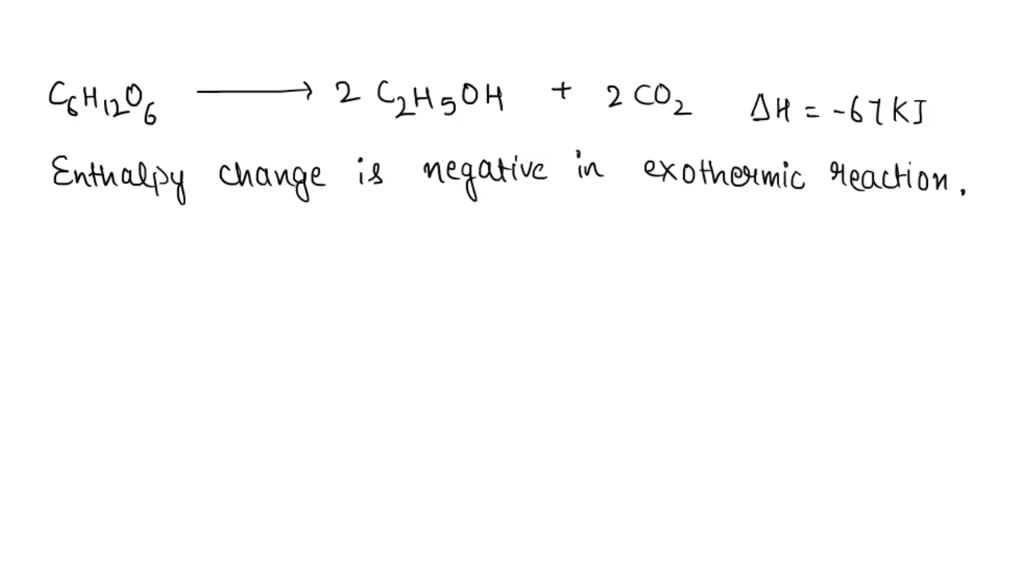 C₆H₁₂O₆ ⟶ 2 C₂H₅OH + 2 CO₂ ΔH = -67 KJ
Enthalpy change is negative in exothermic reaction.